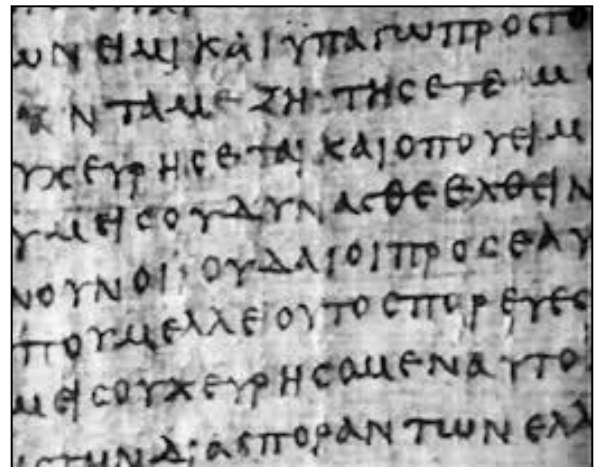 ΩΝΕΙΜΙΚΑΙΥΠΑΓΩΠΡΟϹΤΟ
ΝΤΑΜΕΖΗΤΗϹΕΤΕΜ
ΥΧΕΥΡΗϹΕΤΑΙΚΑΙΟΠΟΥΕΙΜ
ΥΜΕΙϹΟΥΔΥΝΑϹΘΕΕΛΘΕΙΝ
ΝΟΥΝΟΙΪΟΥΔΑΙΟΙΠΡΟϹΕΑΥ
ΠΟΥΜΕΛΛΕΙΟΥΤΟϹΠΟΡΕΥΕϹ
ΜΕΙϹΟΥΧΕΥΡΗϹΟΜΕΝΑΥΤΟ
ΙϹΤΗΝΔΙΑϹΠΟΡΑΝΤΩΝΕΛΛ